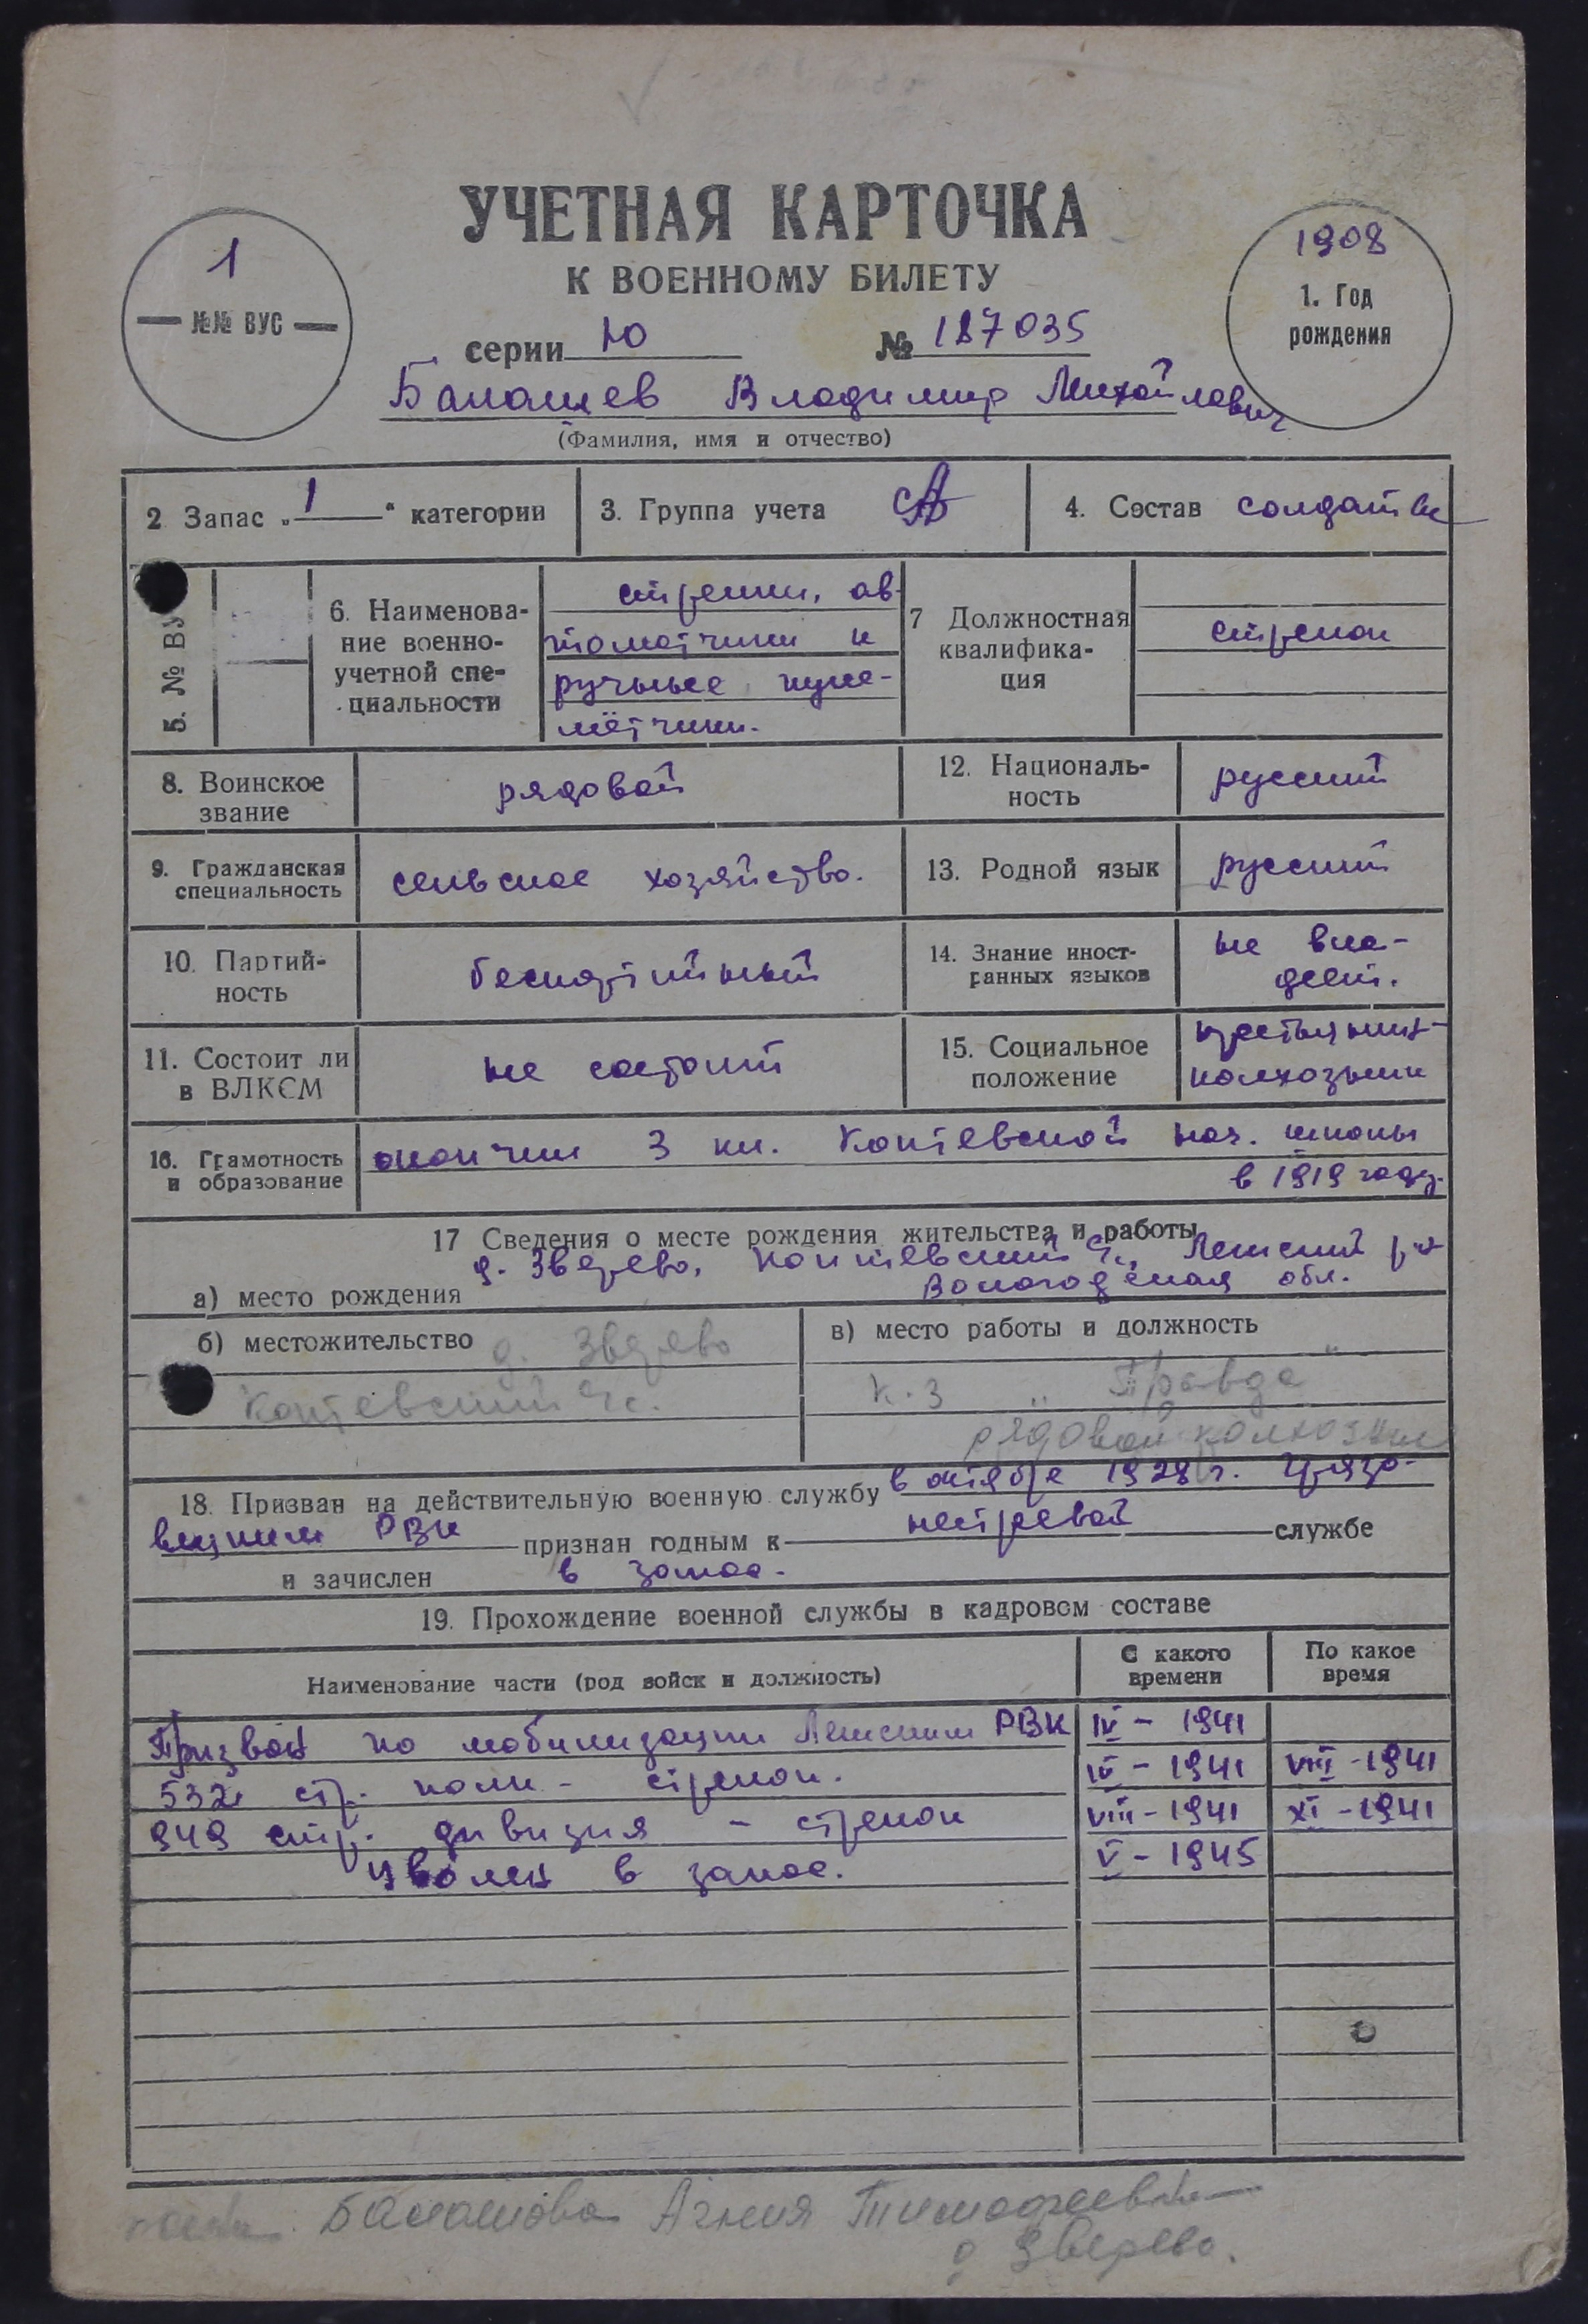 УЧЕТНАЯ КАРТОЧКА
К ВОЕННОМУ БИЛЕТУ
1
№№ ВУС
1908
1. Год
рождения
серии Ю № 187035
Балашев Владимир Михайлович
(Фамилия, имя и отчество)
2 Запас „1“ категории
3. Группа учета СА
4. Состав солдаты
5. № ВУ
6. Наименова-
ние военно-
учетной спе-
циальности
стрелки, ав-
томатчики и
ручные пуле-
мётчики.
7 Должностная
квалифика-
ция
стрелок
8. Воинское
звание
рядовой
12. Националь-
ность
русский
9. Гражданская
специальность
сельское хозяйство.
13. Родной язык
русский
10. Партий-
ность
беспартийный
14. Знание иност-
ранных языков
не вла-
деет.
11. Состоит ли
в ВЛКСМ
не состоит
15. Социальное
положение
колхозник
16. Грамотность
и образование
окончил 3 кл. Коптевской нач. школы
в 1919 году.
17 Сведения о месте рождения жительства и работы
д. Зверево, Коптевский с., Лежский р-н
Вологодская обл.
а) место рождения
б) местожительство д. Зверево
Коптевский с.
в) место работы и должность
к-з „Правда“
рядовой колхозник
18. Призван на действительную военную службу в октябре 1928 г. Грязо-
вецким РВК признан годным к нестроевой службе
и зачислен в запас.
19. Прохождение военной службы в кадровом составе
Наименование части (род войск и должность)
С какого
времени
По какое
время
Призван по мобилизации Лежским РВК IV - 1941
532 стр. полк - стрелок. IV - 1941 VIII - 1941
949 стр. дивизия - стрелок VIII - 1941 XI - 1941
Уволен в запас. V - 1945
Балашова Агния Тимофеевна
д Зверево.